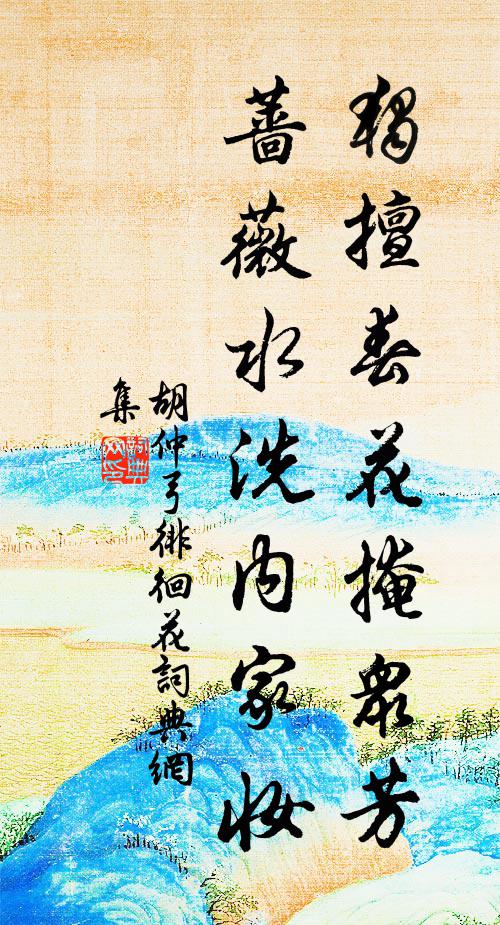 獨擅春花掩衆芳
薔薇水洗内家妝
胡仲弓徘徊花詞典網
集